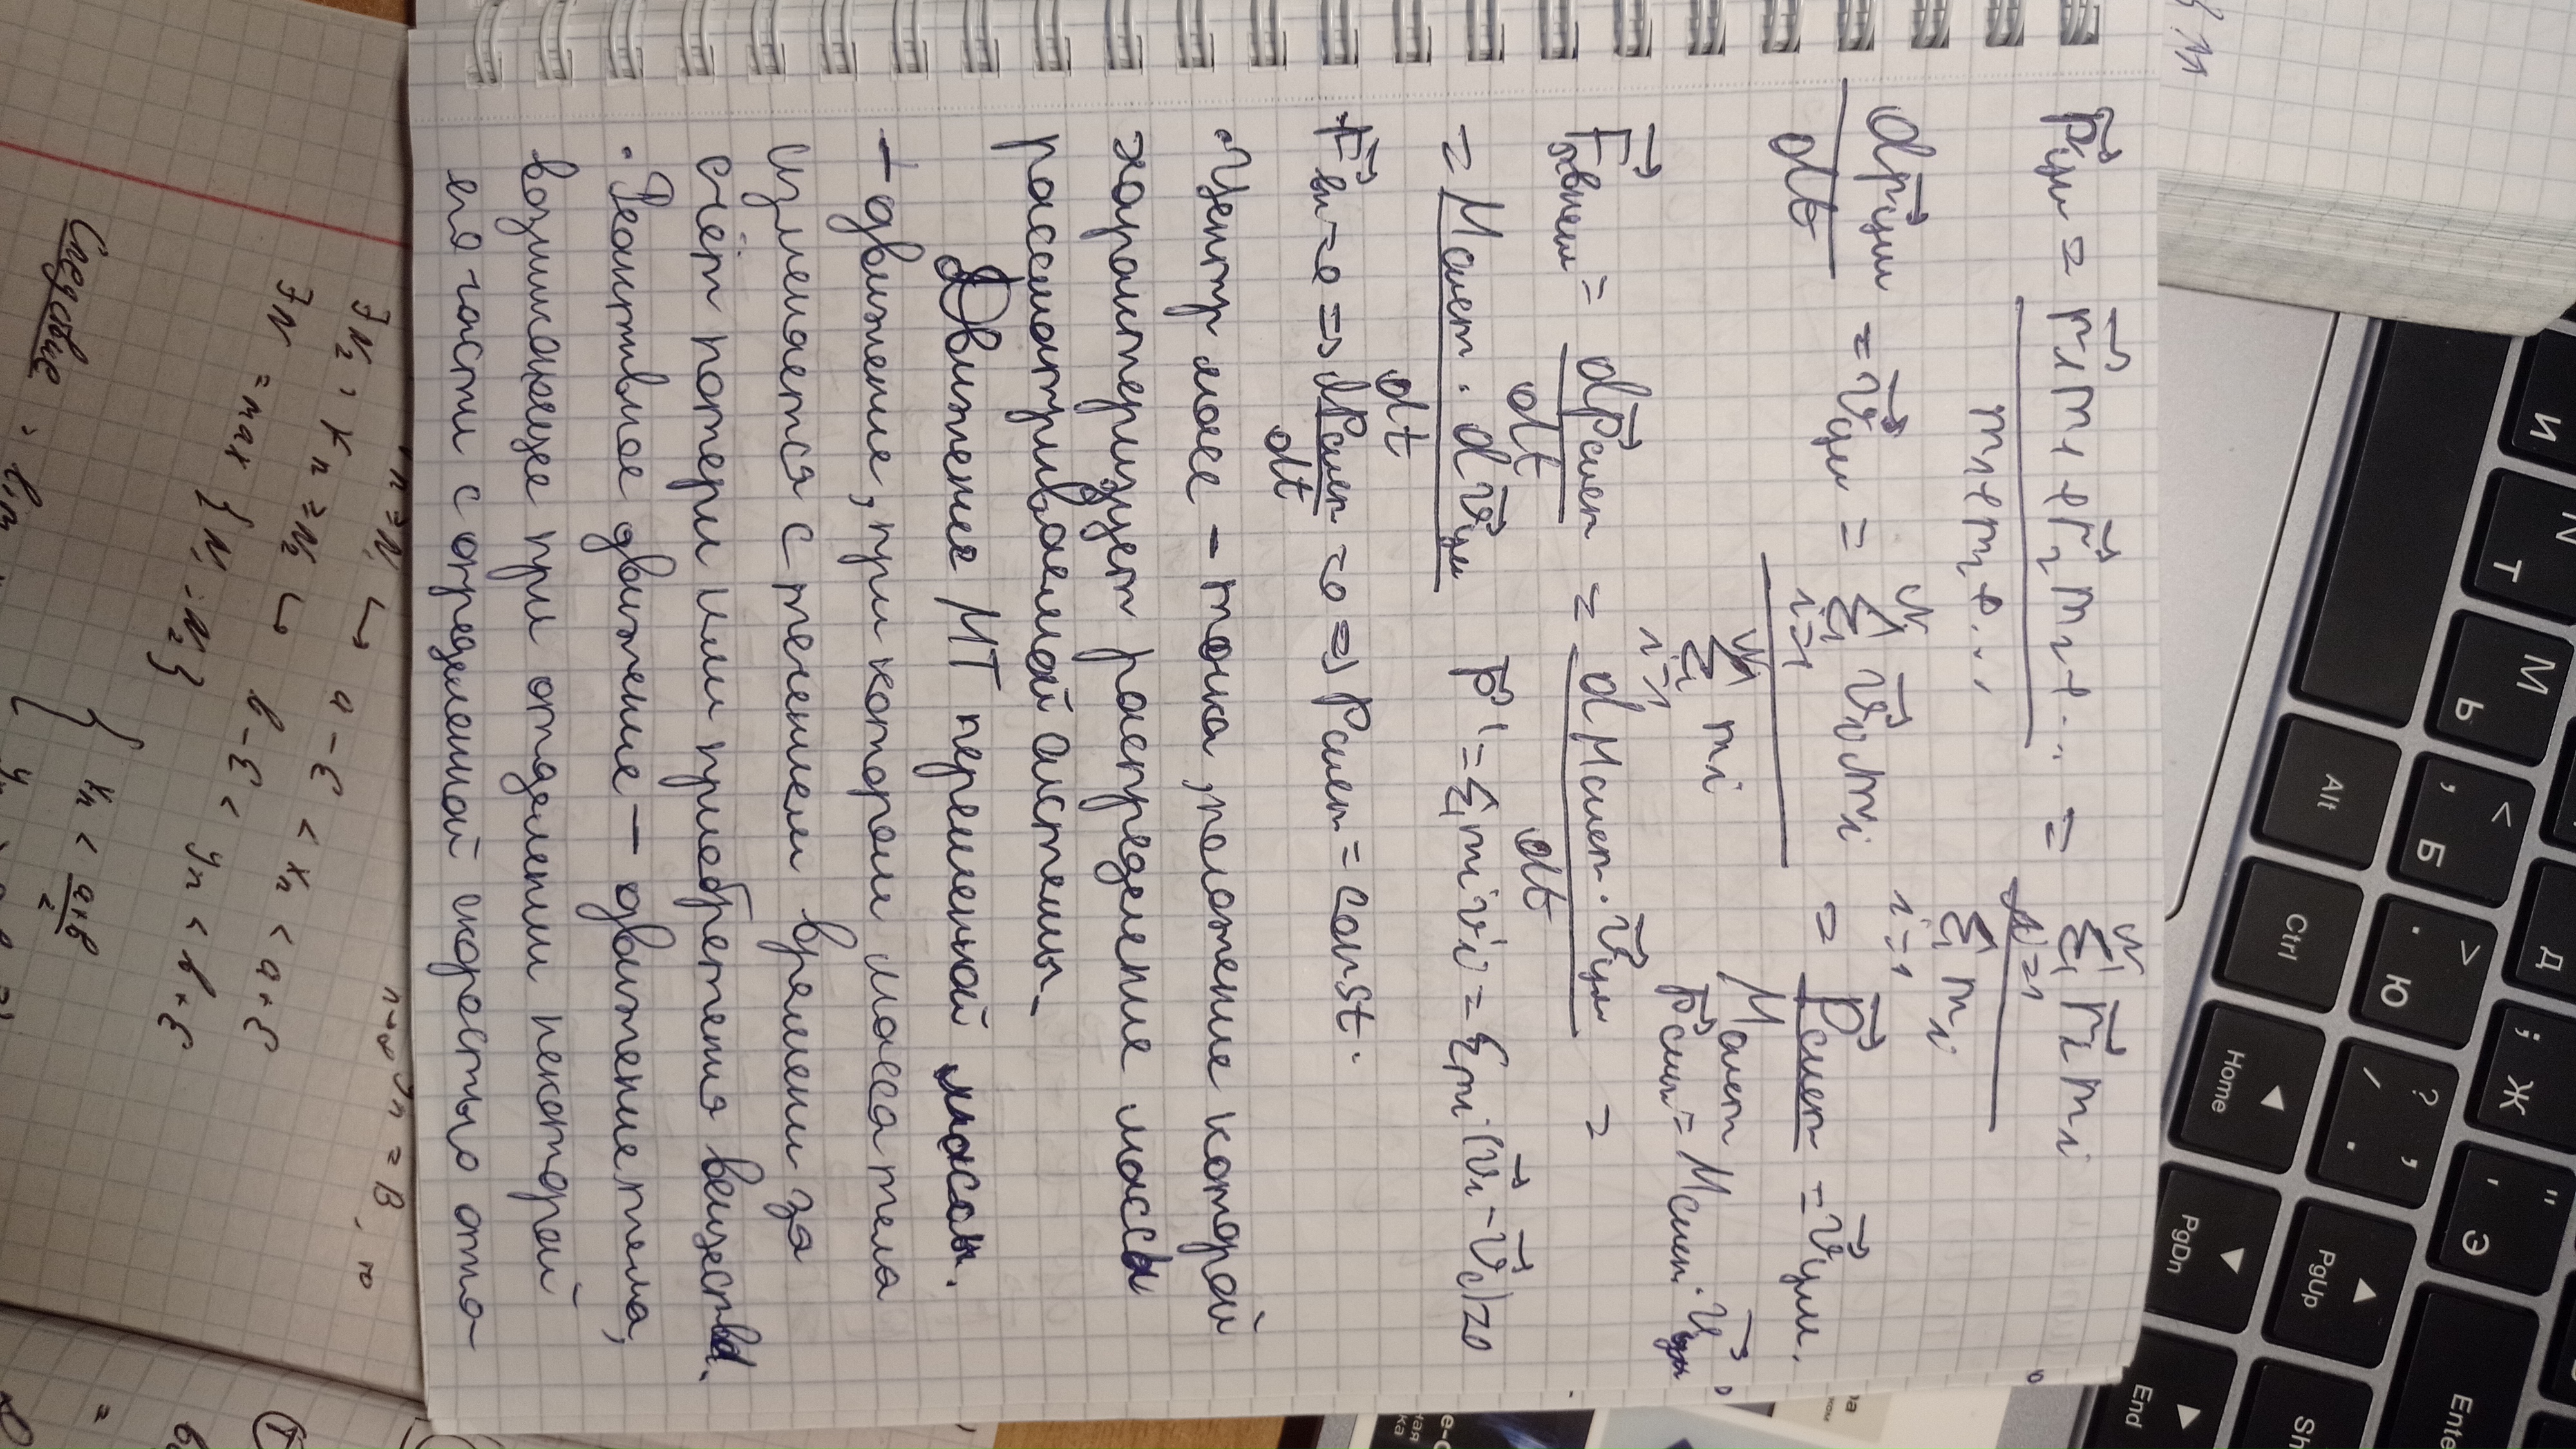 r⃗цм = (r⃗₁m₁ + r⃗₂m₂ + ...)/(m₁+m₂+...) = (∑ᵢ₌₁ᴺ r⃗ᵢmᵢ)/(∑ᵢ₌₁ mᵢ)
dr⃗цм/dt = v⃗цм = (∑ᵢ₌₁ᴺ v⃗ᵢmᵢ)/(∑ᵢ₌₁ᴺ mᵢ) = P⃗сист/Mсист = v⃗цм.
p⃗сист = Mсист · v⃗цм
F⃗внеш = dp⃗сист/dt = dMсист · v⃗цм/dt =
= Mсист · dv⃗цм/dt p⃗' = ∑mᵢvᵢ' = ∑mᵢ·(v⃗ᵢ - v⃗c)=0
F⃗вн = 0 => dPсист/dt = 0 => Pсист = const.
• Центр масс – точка, положение которой
характеризует распределение массы
рассматриваемой системы –
Движение МТ переменной массы.
– движение, при котором масса тела
изменяется с течением времени за
счёт потери или приобретения вещества.
• Реактивное движение – движение тела,
возникающее при отделении некоторой
его части с определенной скоростью отно-
n ≥ N₁ ↪ a - ε < xₙ < a + ε
∃N₂ : ∀n ≥ N₂ ↪ b - ε < yₙ < b + ε
∃N = max {N₁; N₂}
xₙ < (a+b)/2
yₙ = B, то
Следствие :
И
Т
N
Ь
М
Б
<
,
Ю
>
.
Д
Ж
;
Э
"
'
?
/
Alt
Ctrl
Home
PgDn
PgUp
End
Enter
Sh